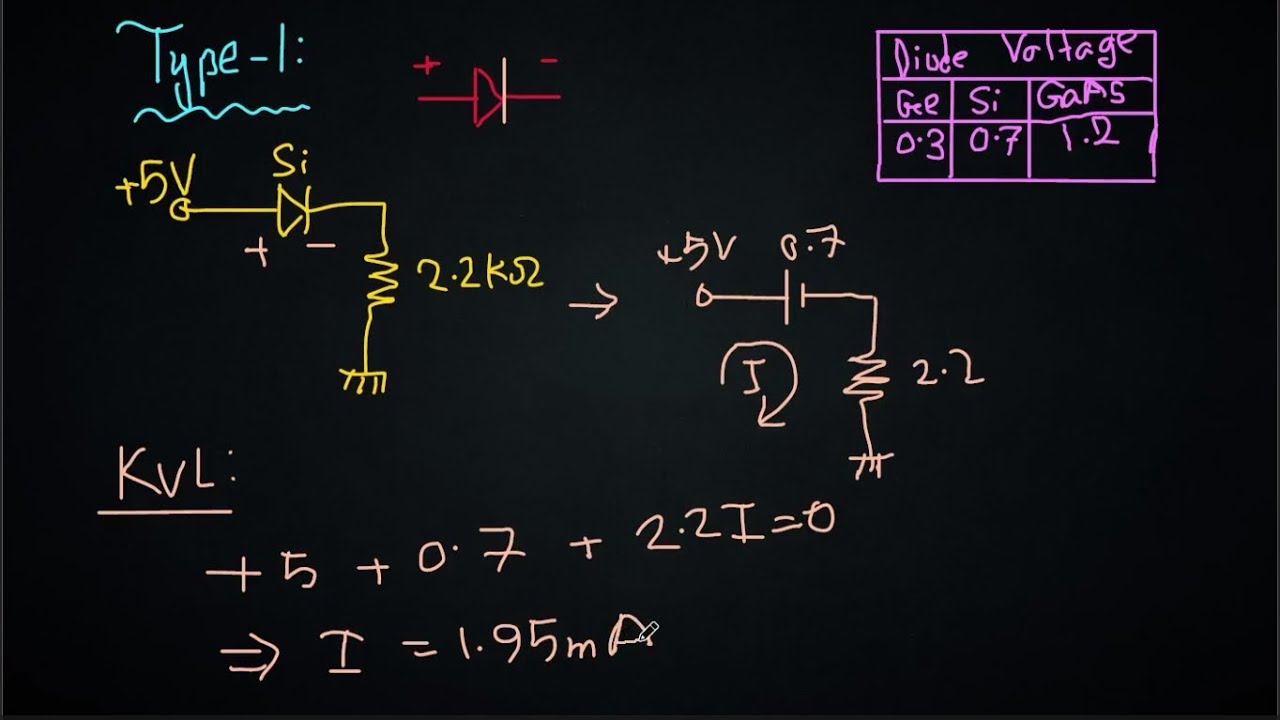 Type-1:
+ -
Diode Voltage
Ge Si GaAs
0.3 0.7 1.2
+5V Si
+ -
2.2KΩ
→
+5V 0.7
I
2.2
KVL:
+5 + 0.7 + 2.2I=0
⇒ I = 1.95mA